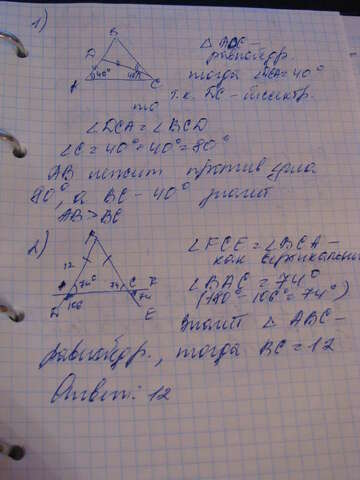 1)
B
D
A 40° 40° C
△ ADC –
равнобедр.
тогда ∠DCA = 40°
т.к. DC – биссектр.
то
∠DCA = ∠BCD
∠C = 40° + 40° = 80°
AB лежит против угла
80°, а BC – 40° значит
AB > BC
2)
B
12
74° 74 C F
106 74
E
∠FCE = ∠BCA –
как вертикальные
∠BAC = 74°
(180° – 106° = 74°)
значит △ ABC –
равнобедр., тогда BC = 12
Ответ: 12